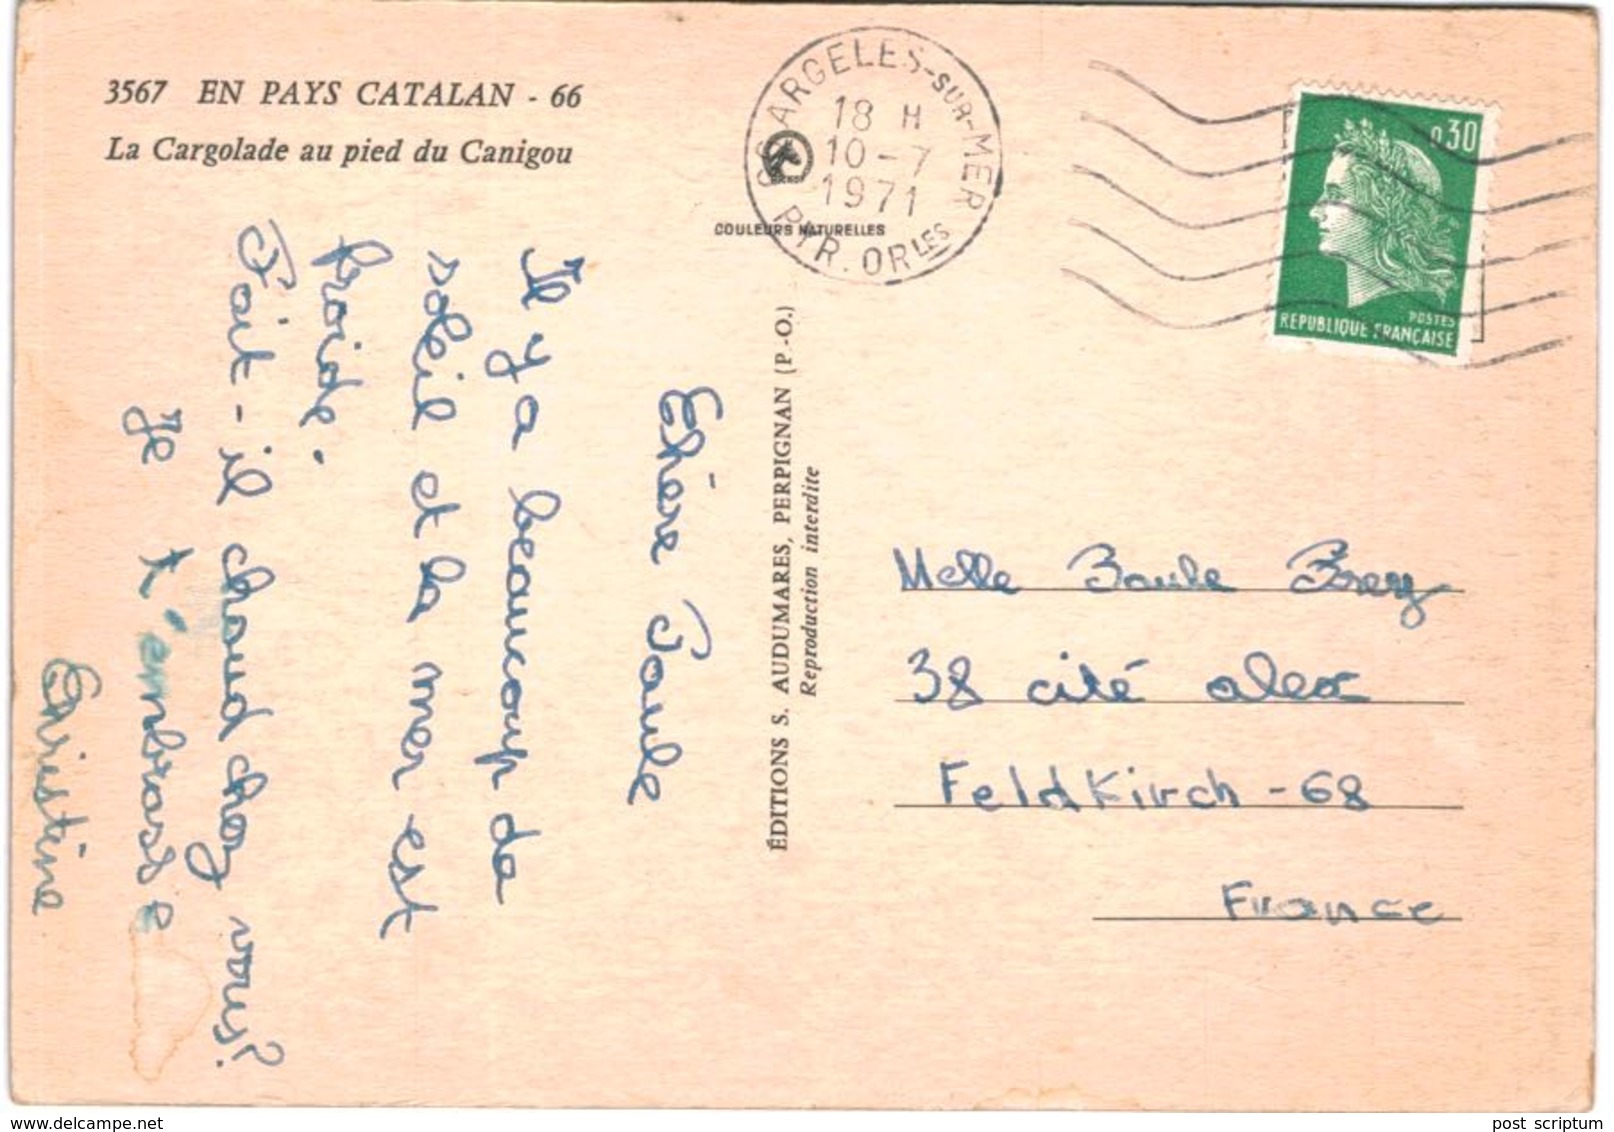 3567 EN PAYS CATALAN - 66
La Cargolade au pied du Canigou
ARGELES-SUR-MER
18 H
10-7
1971
PYR. ORLES
COULEURS NATURELLES
0.30
POSTES
REPUBLIQUE FRANÇAISE
Chère Paule
Il y a beaucoup de
soleil et la mer est
froide.
Fait-il chaud chez vous?
Je t'embrasse
Christine
ÉDITIONS S. AUDUMARES, PERPIGNAN (P.-O.)
Reproduction interdite
Melle Paule
38 cité alex
Feldkirch - 68
France
delcampe.net
post scriptum